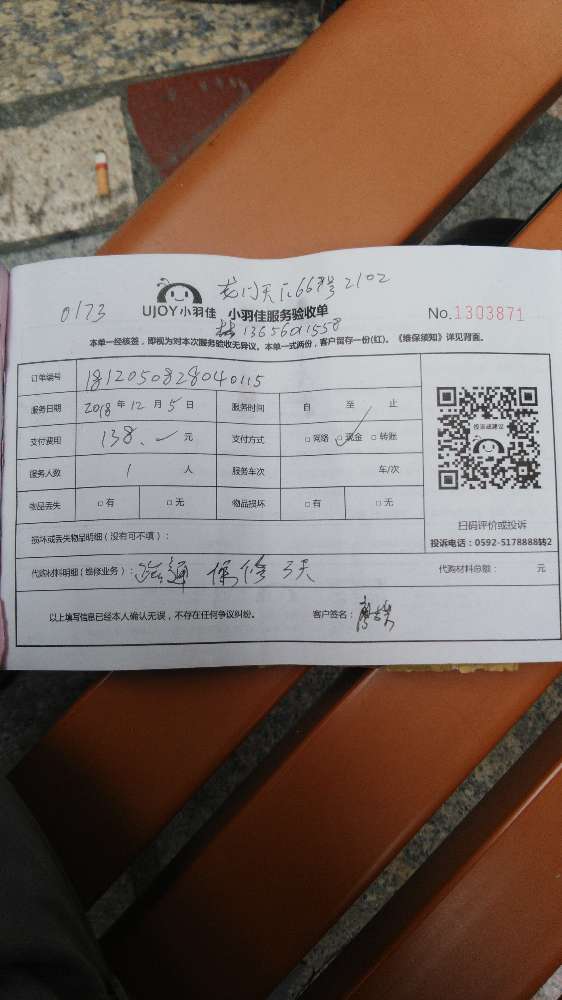 龙门天下66号2102
0173
UJOY小羽佳 小羽佳服务验收单
No.1303871
13656011558
本单一经核签，即视为对本次服务验收无异议。本单一式两份，客户留存一份(红)。《维保须知》详见背面。
订单编号 1812050828040115
服务日期 2018年12月5日 服务时间 自 至 止
支付费用 138.元 支付方式 □网络 ☑现金 □转账
投诉或建议
服务人数 1 人 服务车次 车/次
物品丢失 □有 □无 物品损坏 □有 □无
扫码评价或投诉
损坏或丢失物品明细（没有可不填）：
投诉电话：0592-5178888转2
代购材料明细（维修业务）： 疏通 保修3天 代购材料总额： 元
以上填写信息已经本人确认无误，不存在任何争议纠纷。 客户签名：